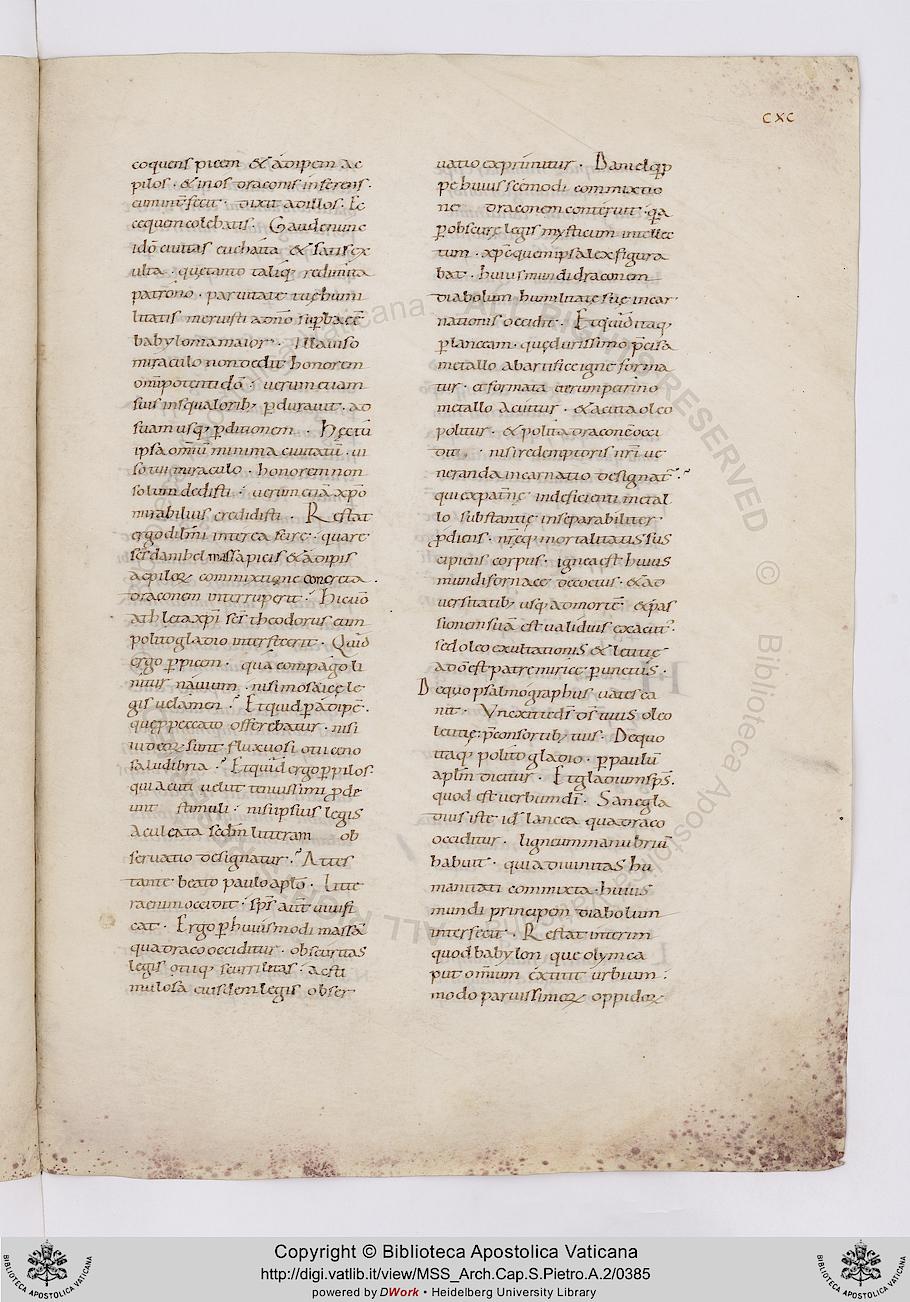 CXC
coquens picem & adipem ac
pilos · & in os draconis inserens ·
cuminte fecit · dixit ad illos · Ec
ce quem colebatis · Gaude nunc
ido ciuitas euchaita & satis ex
ulta · que tanto taliq; redimita
patrono · paruitate tue humi
litatis meruisti a dno supba ee
babylonia maior · Illa uiso
miraculo non dedit honorem
omipotenti do · uerum etiam
suis in squalorib; pdurauit · ad
suam usq; pditionem · Hec tu
ipsa omiu minima ciuitatu · ui
so tui miraculo · honorem non
solum dedisti · uerum etia xpo
mirabilius credidisti · Restat
ergo dibmi interea scire · quare
ses danihel massa picis & adipis
ac pilorum commixtione concreta ·
draconem interruperit · Hic uo
athleta xpi ses theodorus cum
polito gladio interfecerit · Quid
ergo p picem · qua compago li
nitur nauium · nisi mosaice le
gis uelamen · Et quid p adipe ·
que p peccato offerebatur · nisi
iudeorum sunt fluxuosi otii ceno
sa ludibria · Et quid ergo p pilos
qui acuti uelut tenuissimi pde
unt stimuli · nisi ipsius legis
aculeata sedm litteram ob
seruatio designatur · Attes
tante beato paulo aplo · Litte
ra enim occidit · sps aut uiuifi
cat · Ergo p huiusmodi massa
qua draco occiditur · obscuritas
legis otiiq; scurrilitas · ac sti
mulosa eiusdem legis obser
uatio exprimitur · Daniel qp
pe huiuscemodi commixtio
ne draconem conteruit · qa
p obscure legis mysticum intellec
tum · xpc quem ipsa lex figura
bat · huius mundi draconem
diabolum humilitate sue incar
nationis occidit · Et quid itaq;
p lanceam · que durissimo pciso
metallo ab artifice igne forma
tur · et formata iterum petrino
metallo acuitur · & acuta oleo
politur · & polita dracone occi
dit · nisi redemptoris nri ue
neranda incarnatio designat ·
qui ex patne indeficienti metal
lo substantie inseparabiliter
pdiens · nreq; mortalitatis sus
cipiens corpus · ignea est huius
mundi fornace decoctus · & ad
uersitatib; usq; ad morte · & pas
sionem sua est ualidius exacut ·
sed oleo exultationis & letitie
a do est patre mirice punctus ·
De quo psalmographus uates ca
nit · Vnxit te ds ds tuus oleo
letitie p consortib; tuis · De quo
itaq; polito gladio · p paulu
aplm dicitur · Et gladium sps ·
quod est uerbum di · Sane gla
dius iste id lancea qua draco
occiditur · ligneum manubriu
habuit · quia diuinitas hu
manitati commixta · huius
mundi principem diabolum
interfecit · Restat interim
quod babylon que olym ca
put omium extitit urbium ·
modo paruissimorum oppidorum
Copyright © Biblioteca Apostolica Vaticana
http://digi.vatlib.it/view/MSS_Arch.Cap.S.Pietro.A.2/0385
powered by DWork • Heidelberg University Library